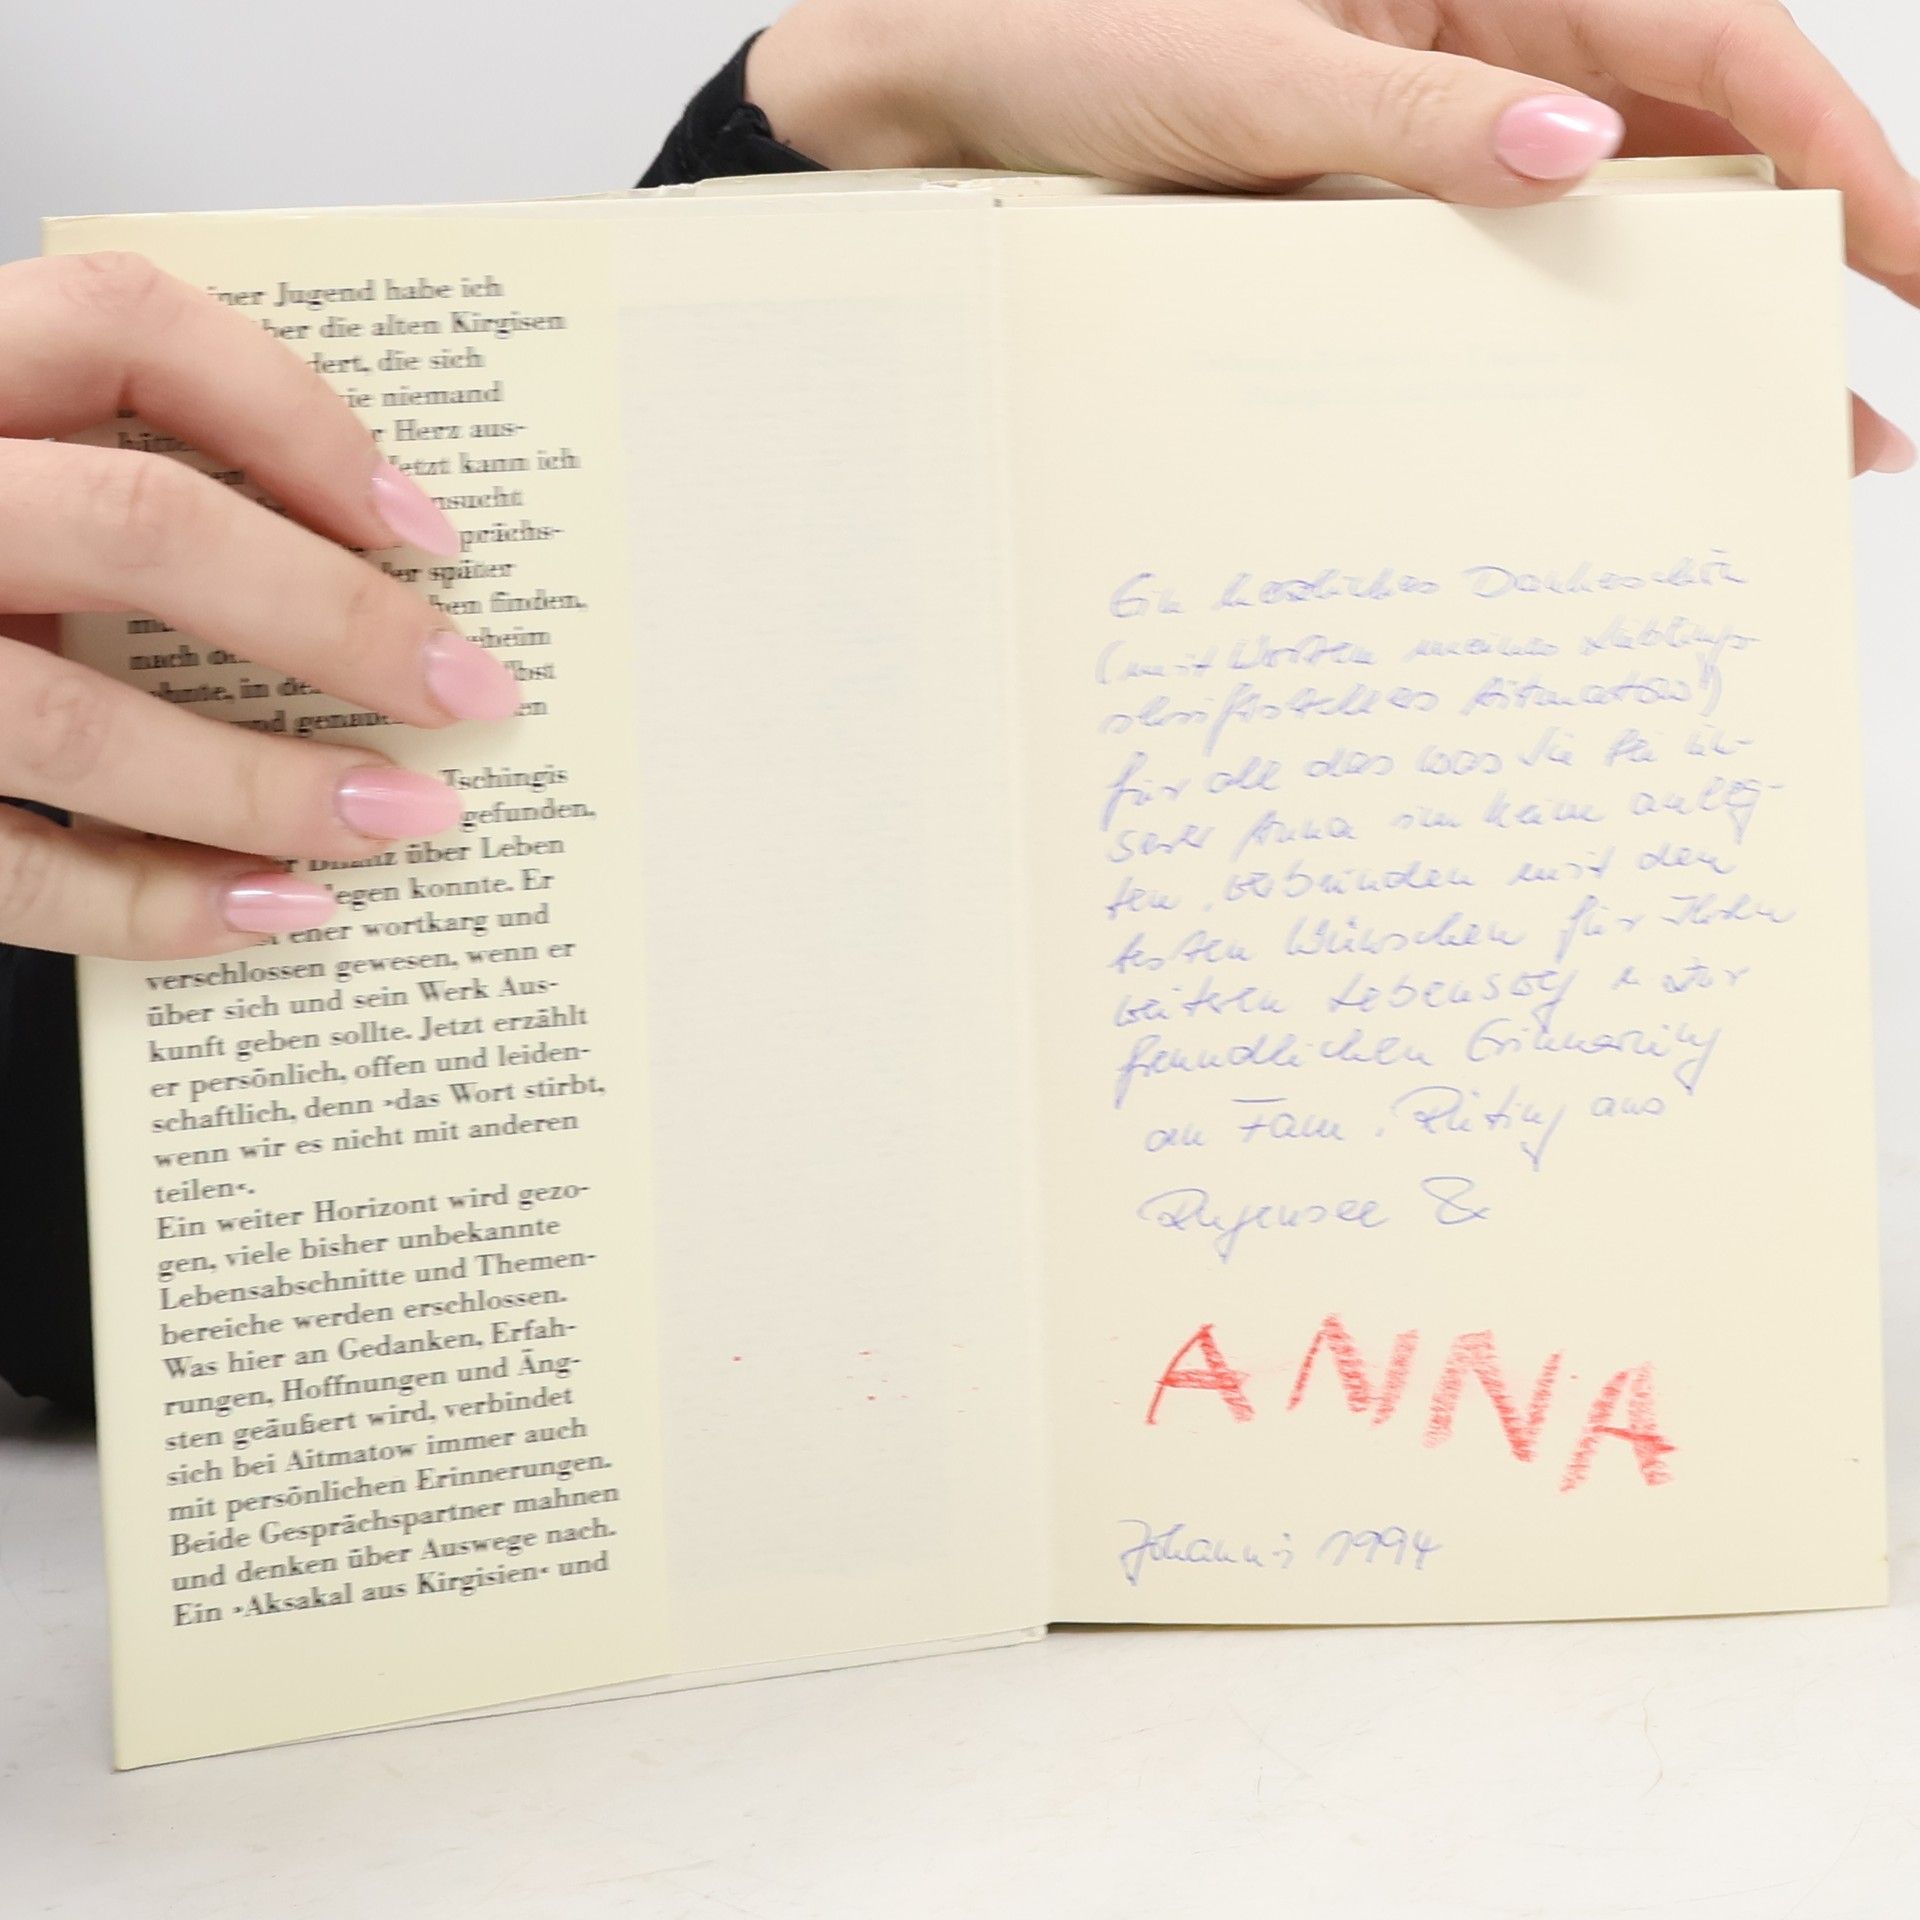 iner Jugend habe ich
ber die alten Kirgisen
dert, die sich
ie niemand
r Herz aus-
Jetzt kann ich
nsucht
prächs-
der später
ben finden,
eheim
nach
lbst
ehnte, in de
en
nd genau
Tschingis
gefunden,
r Bilanz über Leben
legen konnte. Er
eher wortkarg und
verschlossen gewesen, wenn er
über sich und sein Werk Aus-
kunft geben sollte. Jetzt erzählt
er persönlich, offen und leiden-
schaftlich, denn »das Wort stirbt,
wenn wir es nicht mit anderen
teilen«.
Ein weiter Horizont wird gezo-
gen, viele bisher unbekannte
Lebensabschnitte und Themen-
bereiche werden erschlossen.
Was hier an Gedanken, Erfah-
rungen, Hoffnungen und Äng-
sten geäußert wird, verbindet
sich bei Aitmatow immer auch
mit persönlichen Erinnerungen.
Beide Gesprächspartner mahnen
und denken über Auswege nach.
Ein »Aksakal aus Kirgisien« und
Ein herzliches Dankeschön
(mit Worten meines Lieblings-
schriftstellers Aitmatow!)
für all das was Sie bei un-
serer Anna im Keim anleg-
ten, verbunden mit den
besten Wünschen für Ihren
weiteren Lebensweg u. zur
freundlichen Erinnerung
an Fam. Rüting aus
Rugensee &
ANNA
Johanni 1994